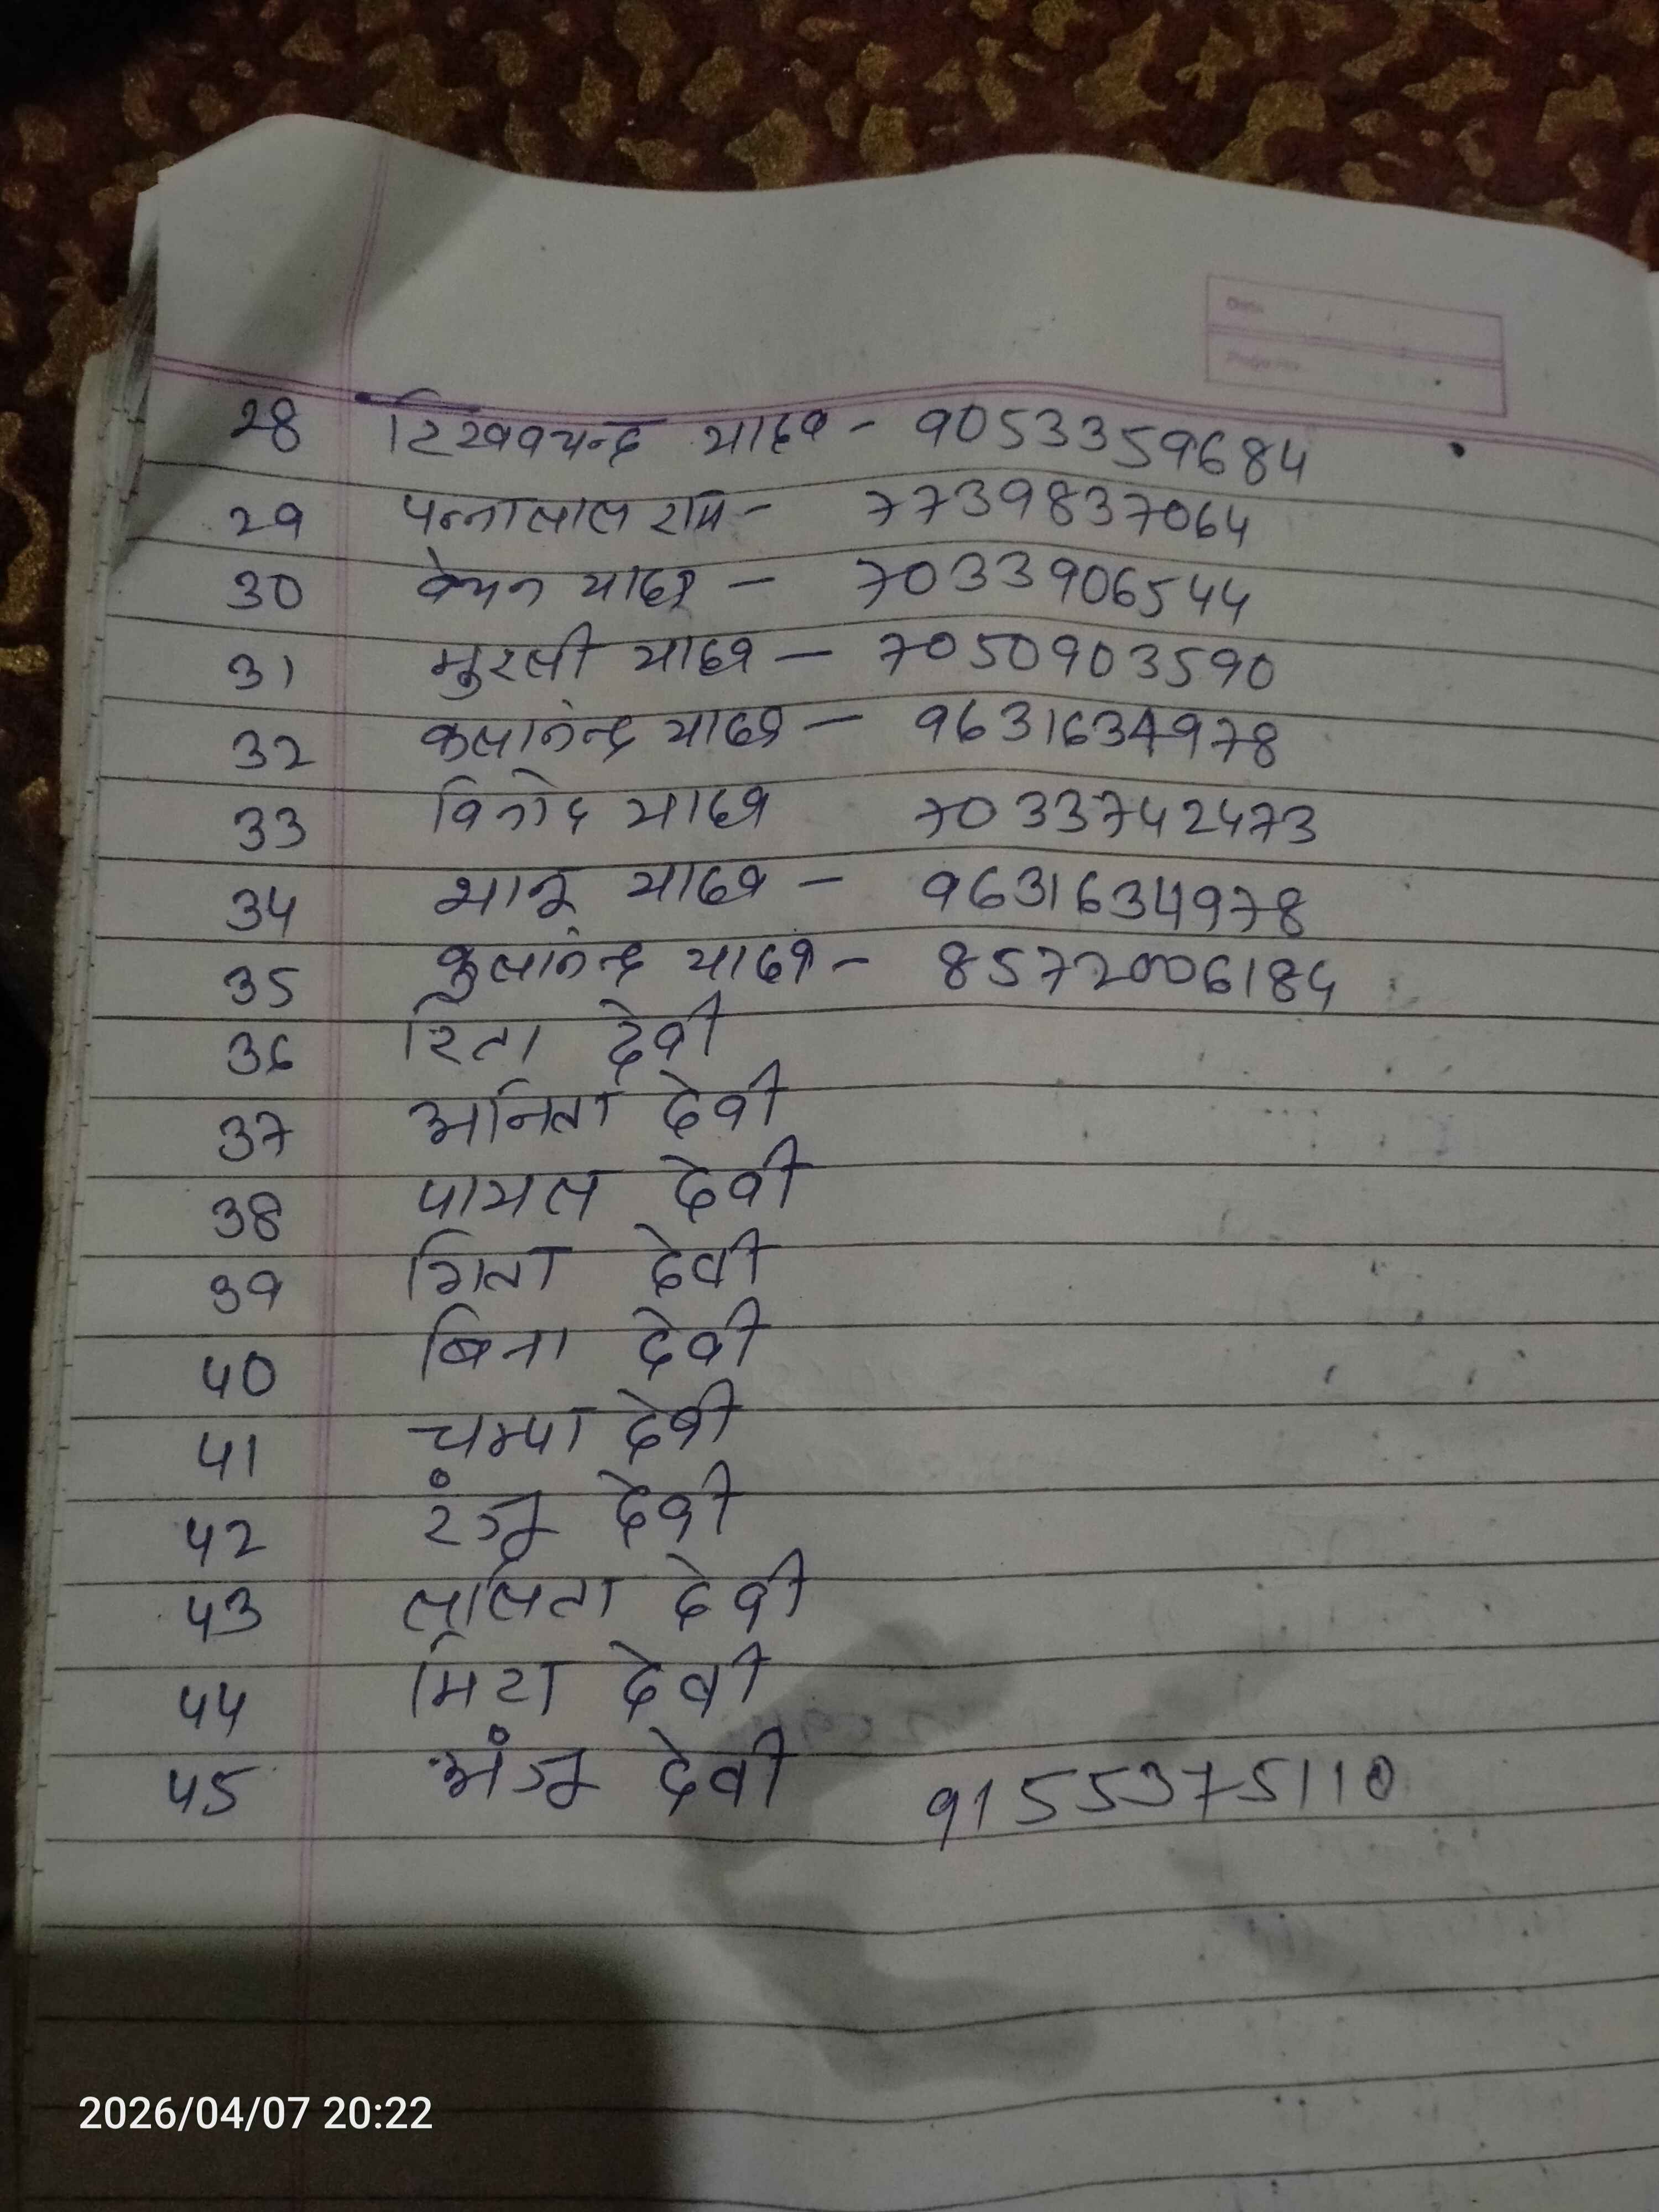 Date
Page No.
28 रिखवचन्द्र यादव - 9053359684
29 पन्नालाल राम - 7739837064
30 वेचन यादव - 7033906544
31 मुरली यादव - 7050903590
32 कलानेन्द्र यादव - 9631634978
33 विनोद यादव 7033742473
34 भानू यादव - 9631634978
35 कुलानन्द्र यादव - 8572006184
36 रिता देवी
37 अनिता देवी
38 पायल देवी
39 गिता देवी
40 बिना देवी
41 चम्पा देवी
42 रंजू देवी
43 ललिता देवी
44 मिरा देवी
45 अंजू देवी 9155375110
2026/04/07 20:22